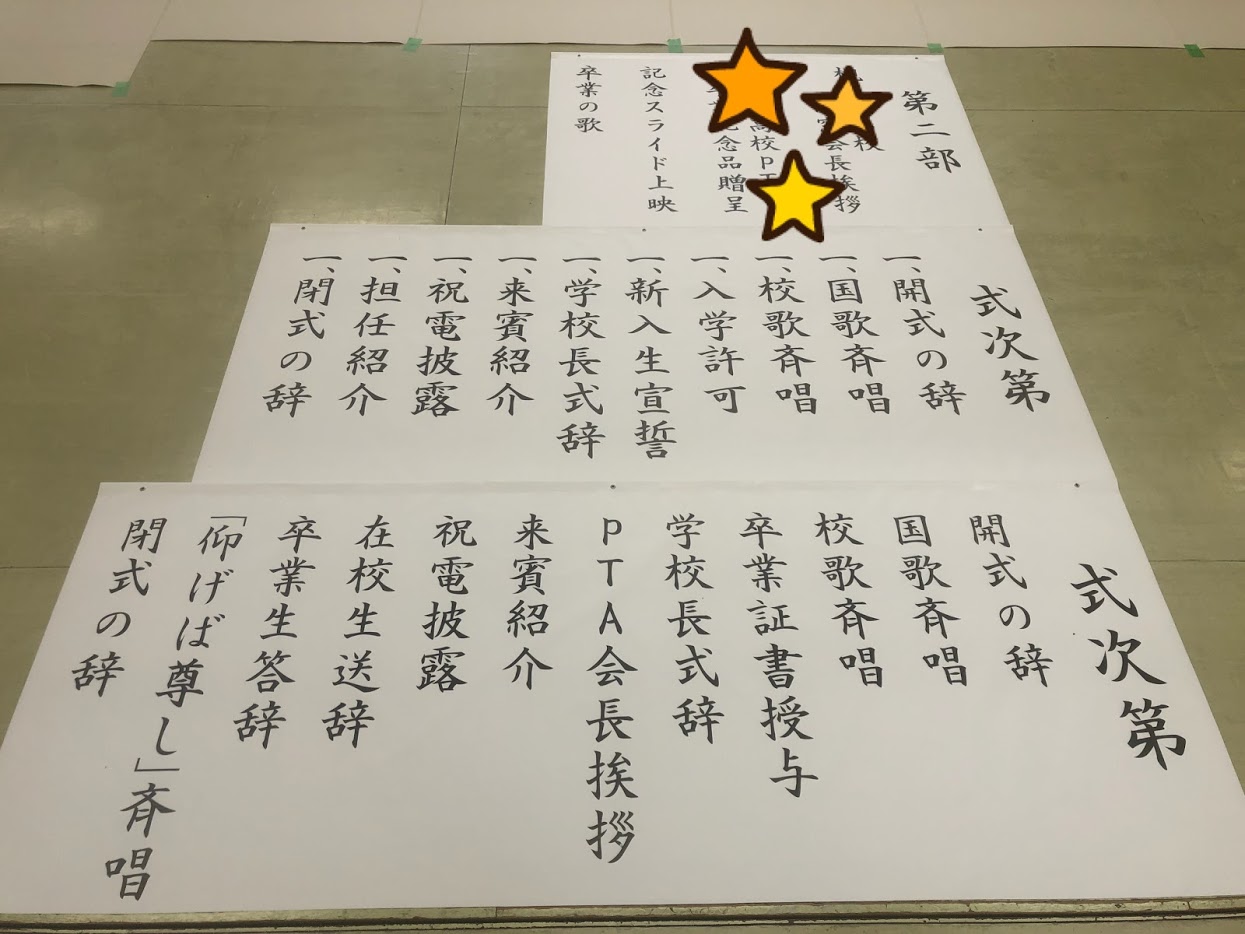 第二部
会長挨拶
記念品贈呈
記念スライド上映
卒業の歌
式次第
一、開式の辞
一、国歌斉唱
一、校歌斉唱
一、入学許可
一、新入生宣誓
一、学校長式辞
一、来賓紹介
一、祝電披露
一、担任紹介
一、閉式の辞
式次第
開式の辞
国歌斉唱
校歌斉唱
卒業証書授与
学校長式辞
PTA会長挨拶
来賓紹介
祝電披露
在校生送辞
卒業生答辞
「仰げば尊し」斉唱
閉式の辞